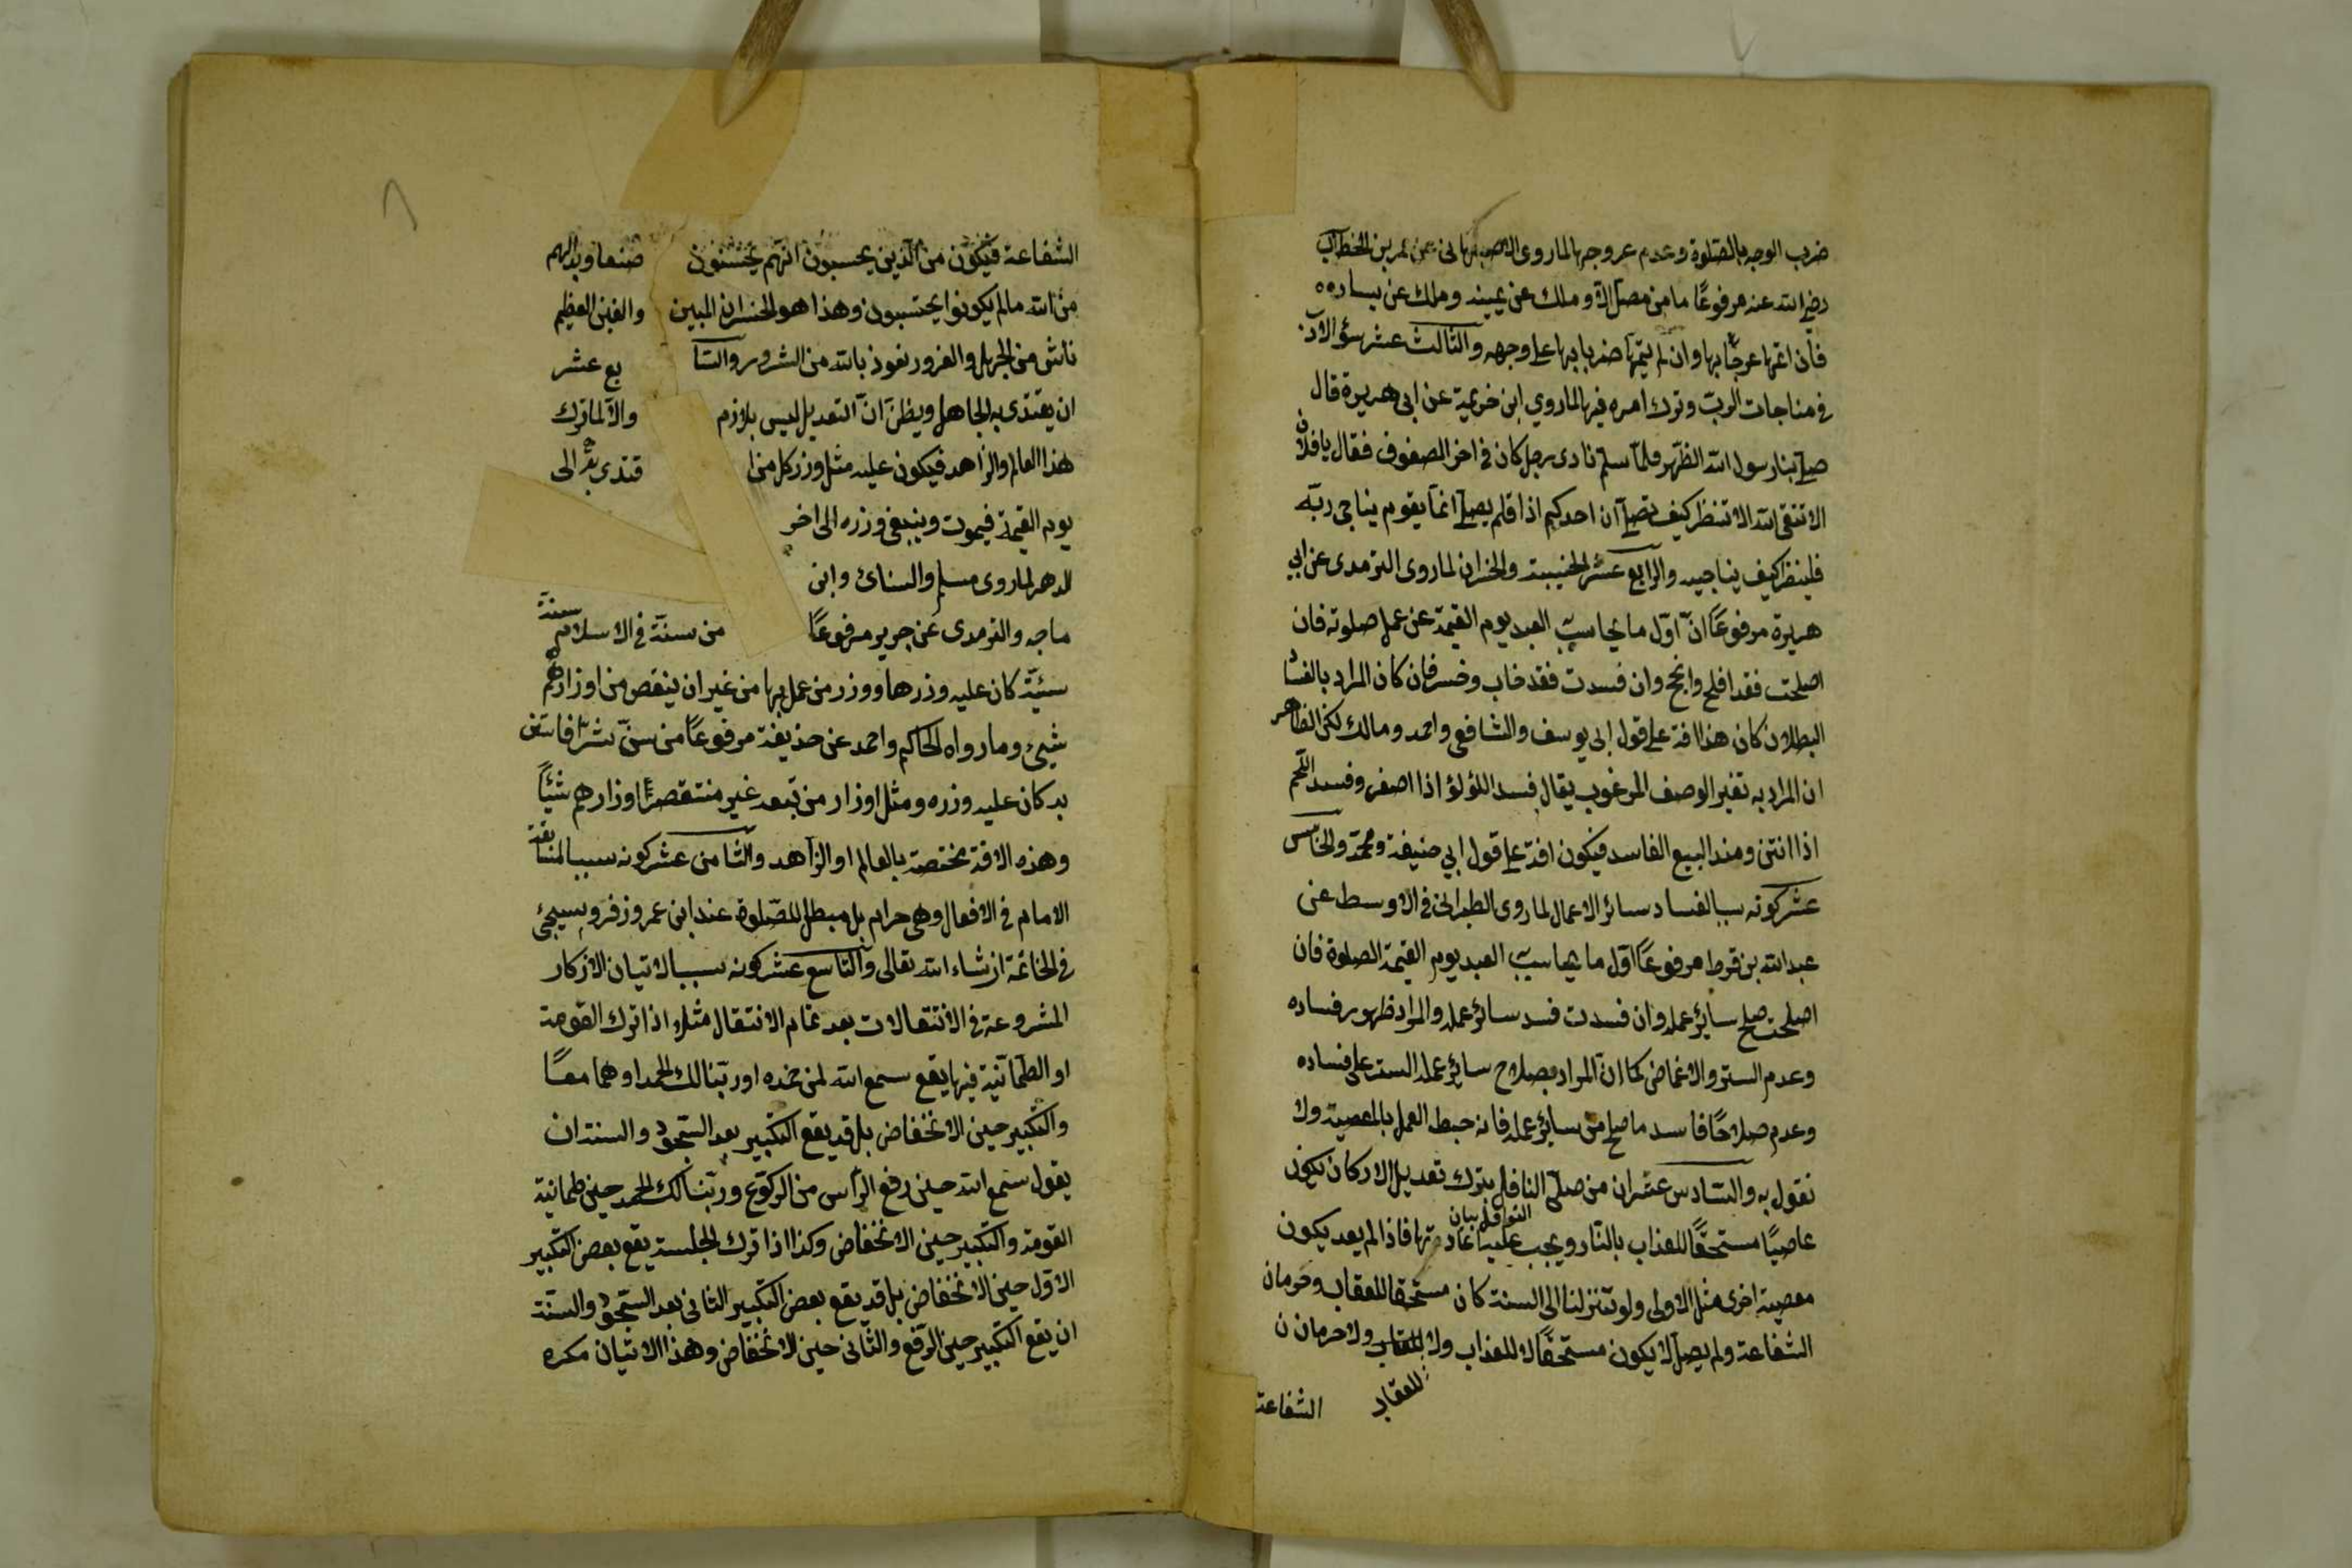 ضرب الوجه بالصلوة وعدم عروجها لما روى الاصبهانى عن عمر بن الخطاب
رضى الله عنه مرفوعًا ما من مصلّ الا وملك عن يمينه وملك عن يساره
فان اتمّها عرجا بها وان لم يتمّها ضربا بها على وجهه والثالث عشر سؤ الادب
فى مناجات الربّ وترك امره فيها لما روى ابن خزيمة عن ابى هريرة قال
صلى بنا رسول الله الظّهر فلمّا سلم نادى رجل كان فى اخر الصفوف فقال يا فلان
الا تتقى الله الا تنظر كيف تصلى ان احدكم اذا قام يصلى انما يقوم يناجى ربّه
فلينظر كيف يناجيه والرابع عشر الخيبة والخسران لما روى الترمدى عن ابى
هريرة مرفوعًا انّ اوّل ما يحاسب العبد يوم القيمة عن عمل صلوته فان
اصلحت فقد افلح وانجح وان فسدت فقد خاب وخسر فان كان المراد بالفساد
البطلان كان هذا افة على قول ابى يوسف والشافعى واحمد ومالك لكن الظاهر
ان المراد به تغير الوصف المرغوب يقال فسد اللؤلؤ اذا اصفر وفسد اللّحم
اذا انتن ومنه البيع الفاسد فيكون افة على قول ابى حنيفة ومحمّد والخامس
عشر كونه سببا لفساد سائر الاعمال لما روى الطبرانى فى الاوسط عن
عبد الله بن قرط مرفوعًا اوّل ما يحاسب العبد يوم القيمة الصلوة فان
اصلحت صلح سائر عمله وان فسدت فسد سائر عمله والمراد ظهور فساده
وعدم الستر والاغماض كما ان المراد بصلاح سائر عمله الستر على فساده
وعدم صلاحًا فاسد ما صلح من سائر عمله فانه حبط العمل بالمعصية ولا
نقول به والسّادس عشر ان من صلّى النافلة بترك تعديل الاركان يكون
عاصيًا مستحقًّا للعذاب بالنّار ويجب عليه اعادتها فاذا لم يعد يكون
النوافل بيان
معصية اخرى مثل الاولى ولو تنزلنا الى السنة كان مستحقا للعقاب وحرمان
الشفاعة ولم يصل لا يكون مستحقًّا لا للعذاب ولا للعقاب ولا حرمان
للعقاب
الشفاعة
الشفاعة فيكون من الّذين يحسبون انّهم يحسنون صنعا وبدا لهم
من الله ما لم يكونوا يحتسبون وهذا هو الخسران المبين والغبن العظيم
ناش من الجهل والغرور نعوذ بالله من الشرور والسّا بع عشر
ان يقتدى به الجاهل ويظنّ انّ التعديل ليس بلازم والّا لما ترك
هذا العالم والزاهد فيكون عليه مثل وزر كل من ا قتدى به الى
يوم القيمة فيموت وينبغى وزره الى اخر
الدهر لما روى مسلم والنسائ وابن
ماجه والترمدى عن جرير مرفوعًا من سنّة فى الاسلام سنة
سيّئة كان عليه وزرها ووزر من عمل بها من غير ان ينقص من اوزارهم
شيئ وما رواه الحاكم واحمد عن حذيفة مرفوعًا من سنّ شرّا فاستن
به كان عليه وزره ومثل اوزار من تبعه غير منتقص من اوزارهم شيئًا
وهذه الافة مختصة بالعالم او الزاهد والثامن عشر كونه سببا لمتابعة
الامام فى الافعال وهى حرام بل مبطل للصّلوة عند ابن عمر وزفر وسيجئ
فى الخاتمة ان شاء الله تعالى والتاسع عشر كونه سببا لاتيان الاذكار
المشروعة فى الانتقالات بعد تمام الانتقال مثلا اذا ترك القومة
او الطمانية فيها يقع سمع الله لمن حمده او ربّنا لك الحمد او هما معًا
والتّكبير حين الانخفاض بل قد يقع التكبير بعد السّجود والسنة ان
يقول سمع الله حين رفع الرأس من الركوع وربّنا لك الحمد حين طمانية
القومة والتكبير حين الانخفاض وكذا اذا ترك الجلسة يقع بعض التكبير
الاوّل حين الانخفاض بل قد يقع بعض التكبير الثانى بعد السّجود والسّنّة
ان يقع التكبير حين الرّفع والثّانى حين الانخفاض وهذا الاتيان مكره